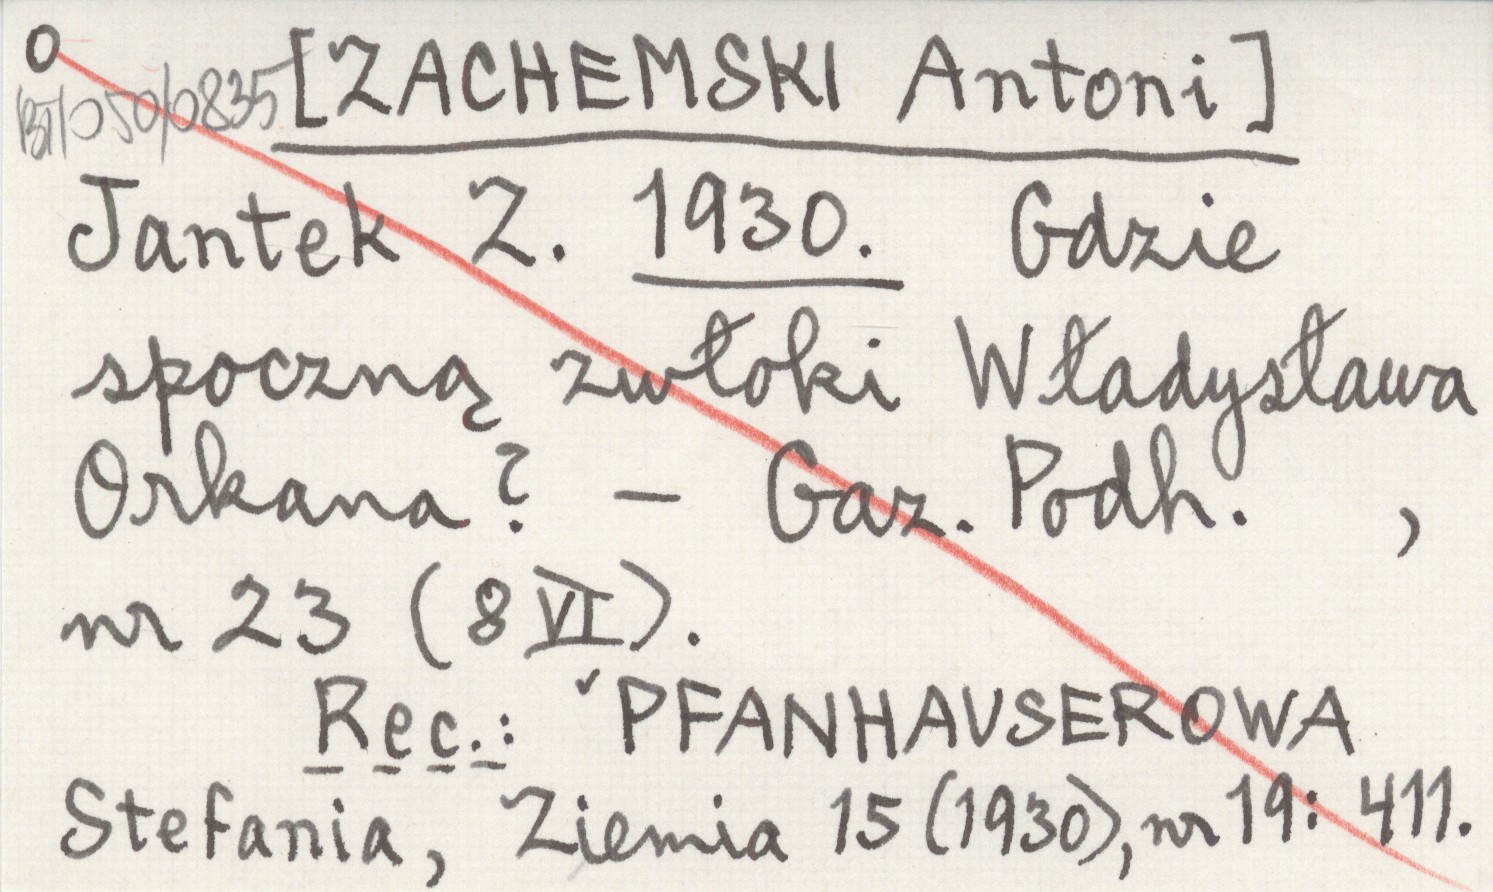 O
BT/050/0835
[ZACHEMSKI Antoni]
Jantek Z. 1930. Gdzie
spoczną zwłoki Władysława
Orkana? — Gaz. Podh. ,
nr 23 (8 VI).
Rec.: ✓PFANHAUSEROWA
Stefania, Ziemia 15 (1930), nr 19: 411.